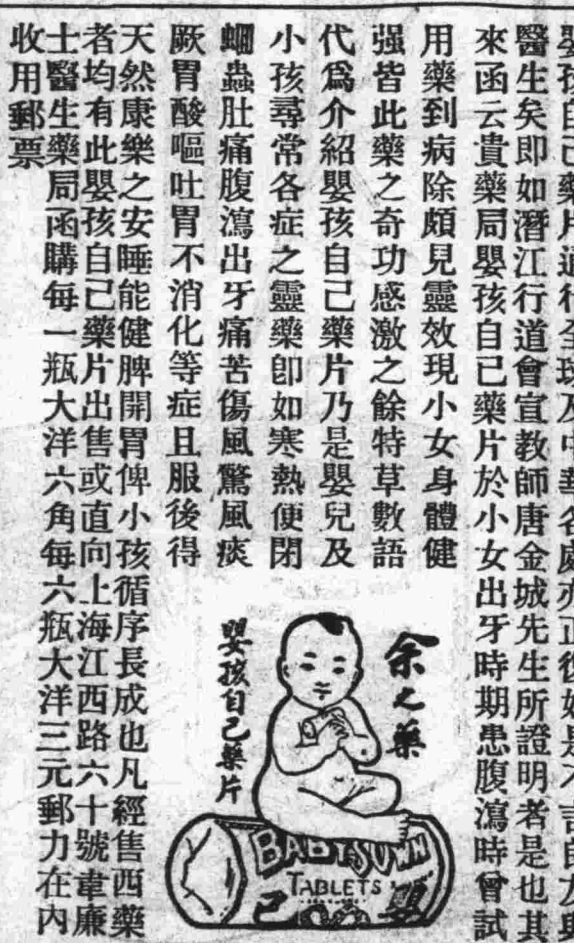 嬰孩自己藥片通行全球及中華各處亦正復如是不言自
醫生矣即如潛江行道會宣教師唐金城先生所證明者是也其
來函云貴藥局嬰孩自己藥片於小女出牙時期患腹瀉時曾試
用藥到病除頗見靈效現小女身體健
强皆此藥之奇功感激之餘特草數語
代爲介紹嬰孩自己藥片乃是嬰兒及
小孩尋常各症之靈藥卽如寒熱便閉
蛔蟲肚痛腹瀉出牙痛苦傷風驚風痰
厥胃酸嘔吐胃不消化等症且服後得
天然康樂之安睡能健脾開胃俾小孩循序長成也凡經售西藥
者均有此嬰孩自己藥片出售或直向上海江西路六十號韋廉
士醫生藥局函購每一瓶大洋六角每六瓶大洋三元郵力在內
收用郵票
余之藥
嬰孩自己藥片
BABY'S OWN
TABLETS
己 嬰